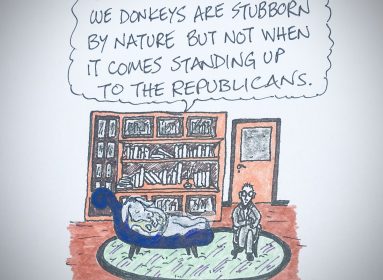 WE DONKEYS ARE STUBBORN
BY NATURE BUT NOT WHEN
IT COMES STANDING UP
TO THE REPUBLICANS.